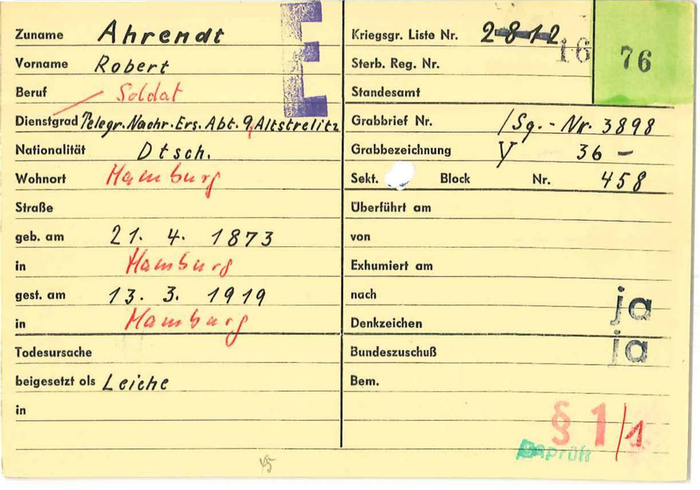 Zuname Ahrendt E
Vorname Robert
Beruf Soldat
Dienstgrad Telegr. Nachr. Ers. Abt. 9, Altstrelitz
Nationalität Dtsch.
Wohnort Hamburg
Straße
geb. am 21. 4. 1873
in Hamburg
gest. am 13. 3. 1919
in Hamburg
Todesursache
beigesetzt als Leiche
in
Kriegsgr. Liste Nr. 2812 16 76
Sterb. Reg. Nr.
Standesamt
Grabbrief Nr. /Sg.-Nr. 3898
Grabbezeichnung V 36-
Sekt. Block Nr. 458
Überführt am
von
Exhumiert am
nach ja
Denkzeichen
Bundeszuschuß ja
Bem.
§ 1/1
geprüft